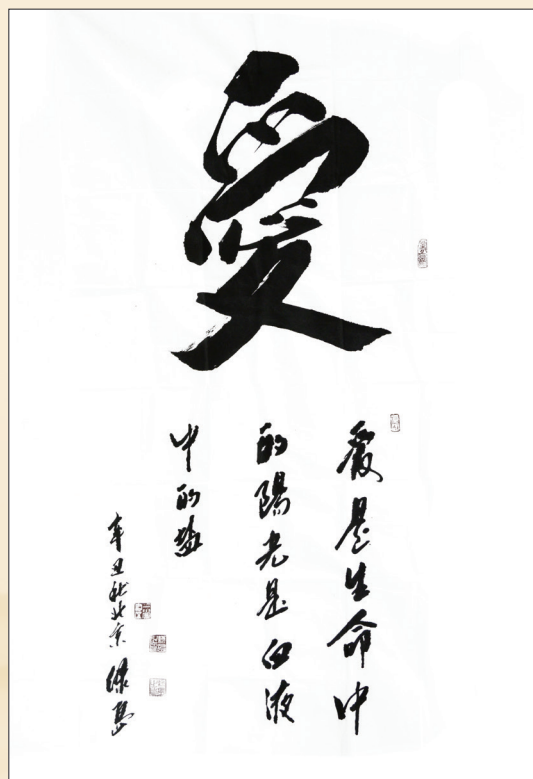 愛
愛是生命中
的陽光是血液
中的鹽
辛丑秋北京 綠島